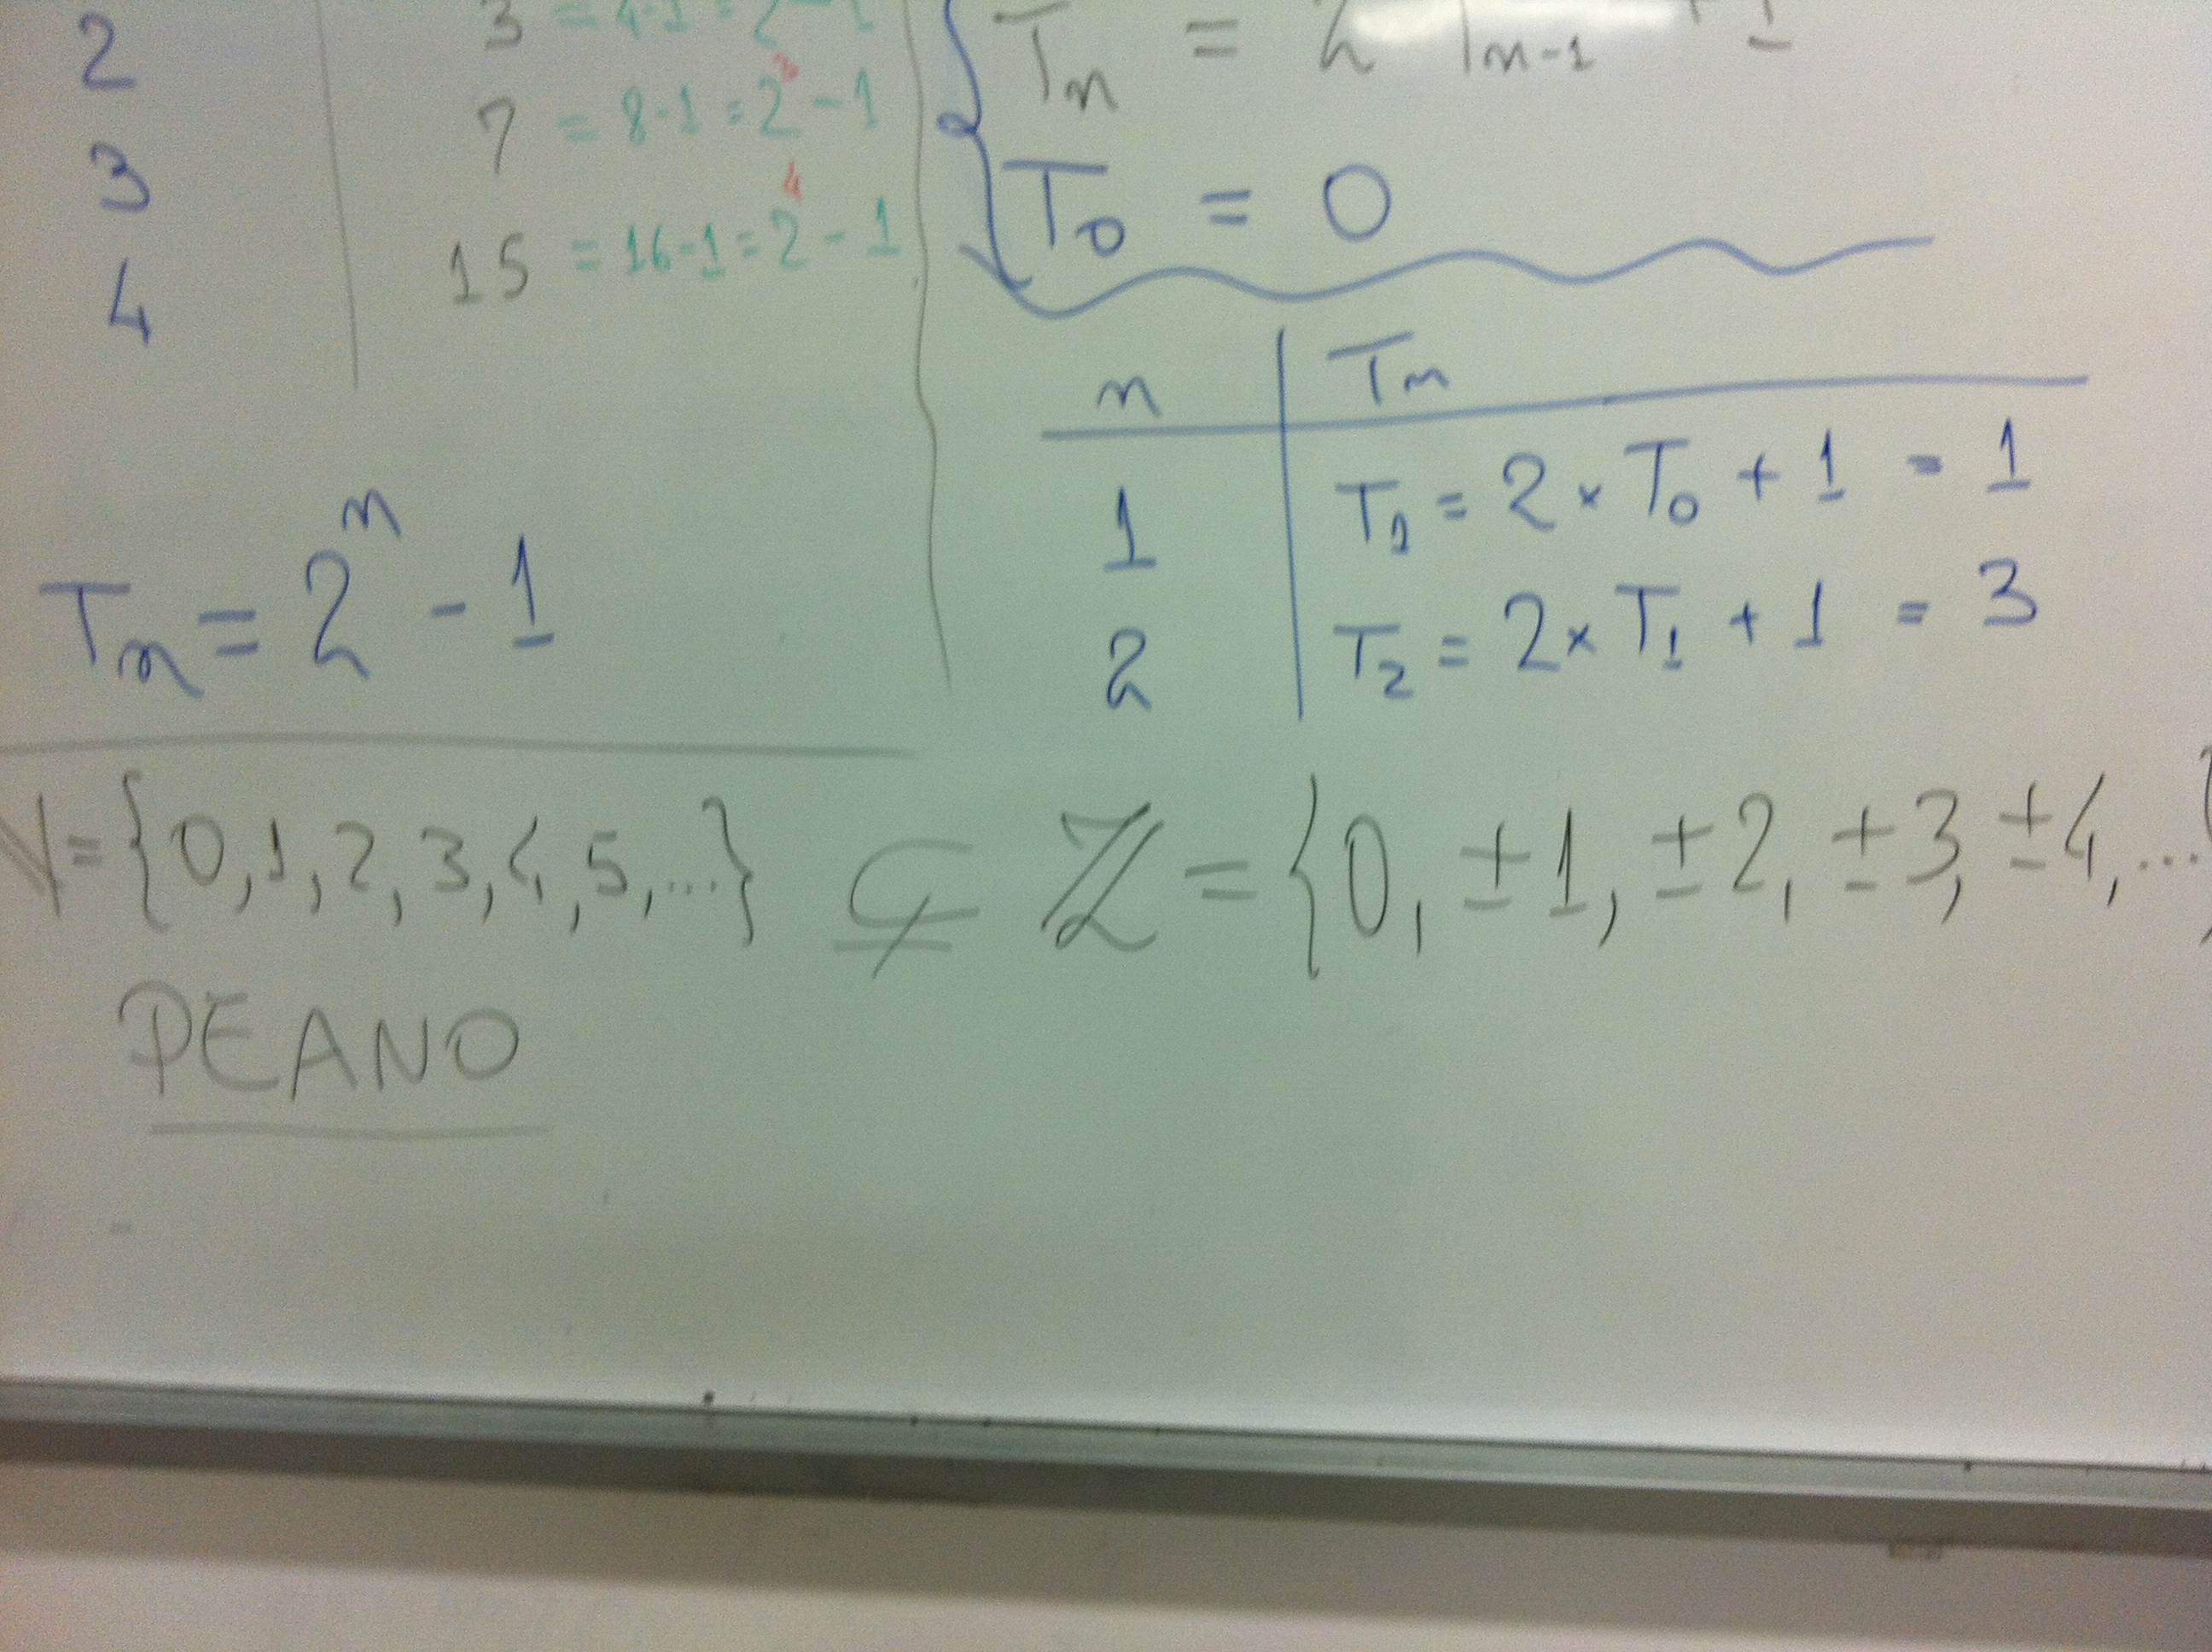 2 3 = 4-1 = 2 - 1
3 7 = 8-1 = 2³ - 1
4 15 = 16-1 = 2⁴ - 1
Tₙ = 2ⁿ - 1
Tₙ = 2 Tₙ₋₁ + 1
T₀ = 0
n Tₙ
1 T₁ = 2 × T₀ + 1 = 1
2 T₂ = 2 × T₁ + 1 = 3
ℕ = {0, 1, 2, 3, 4, 5, ...} ⊊ ℤ = {0, ±1, ±2, ±3, ±4, ...}
PEANO